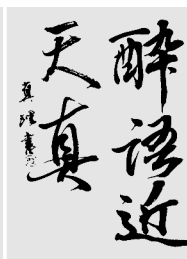 醉语近
天真
真理書